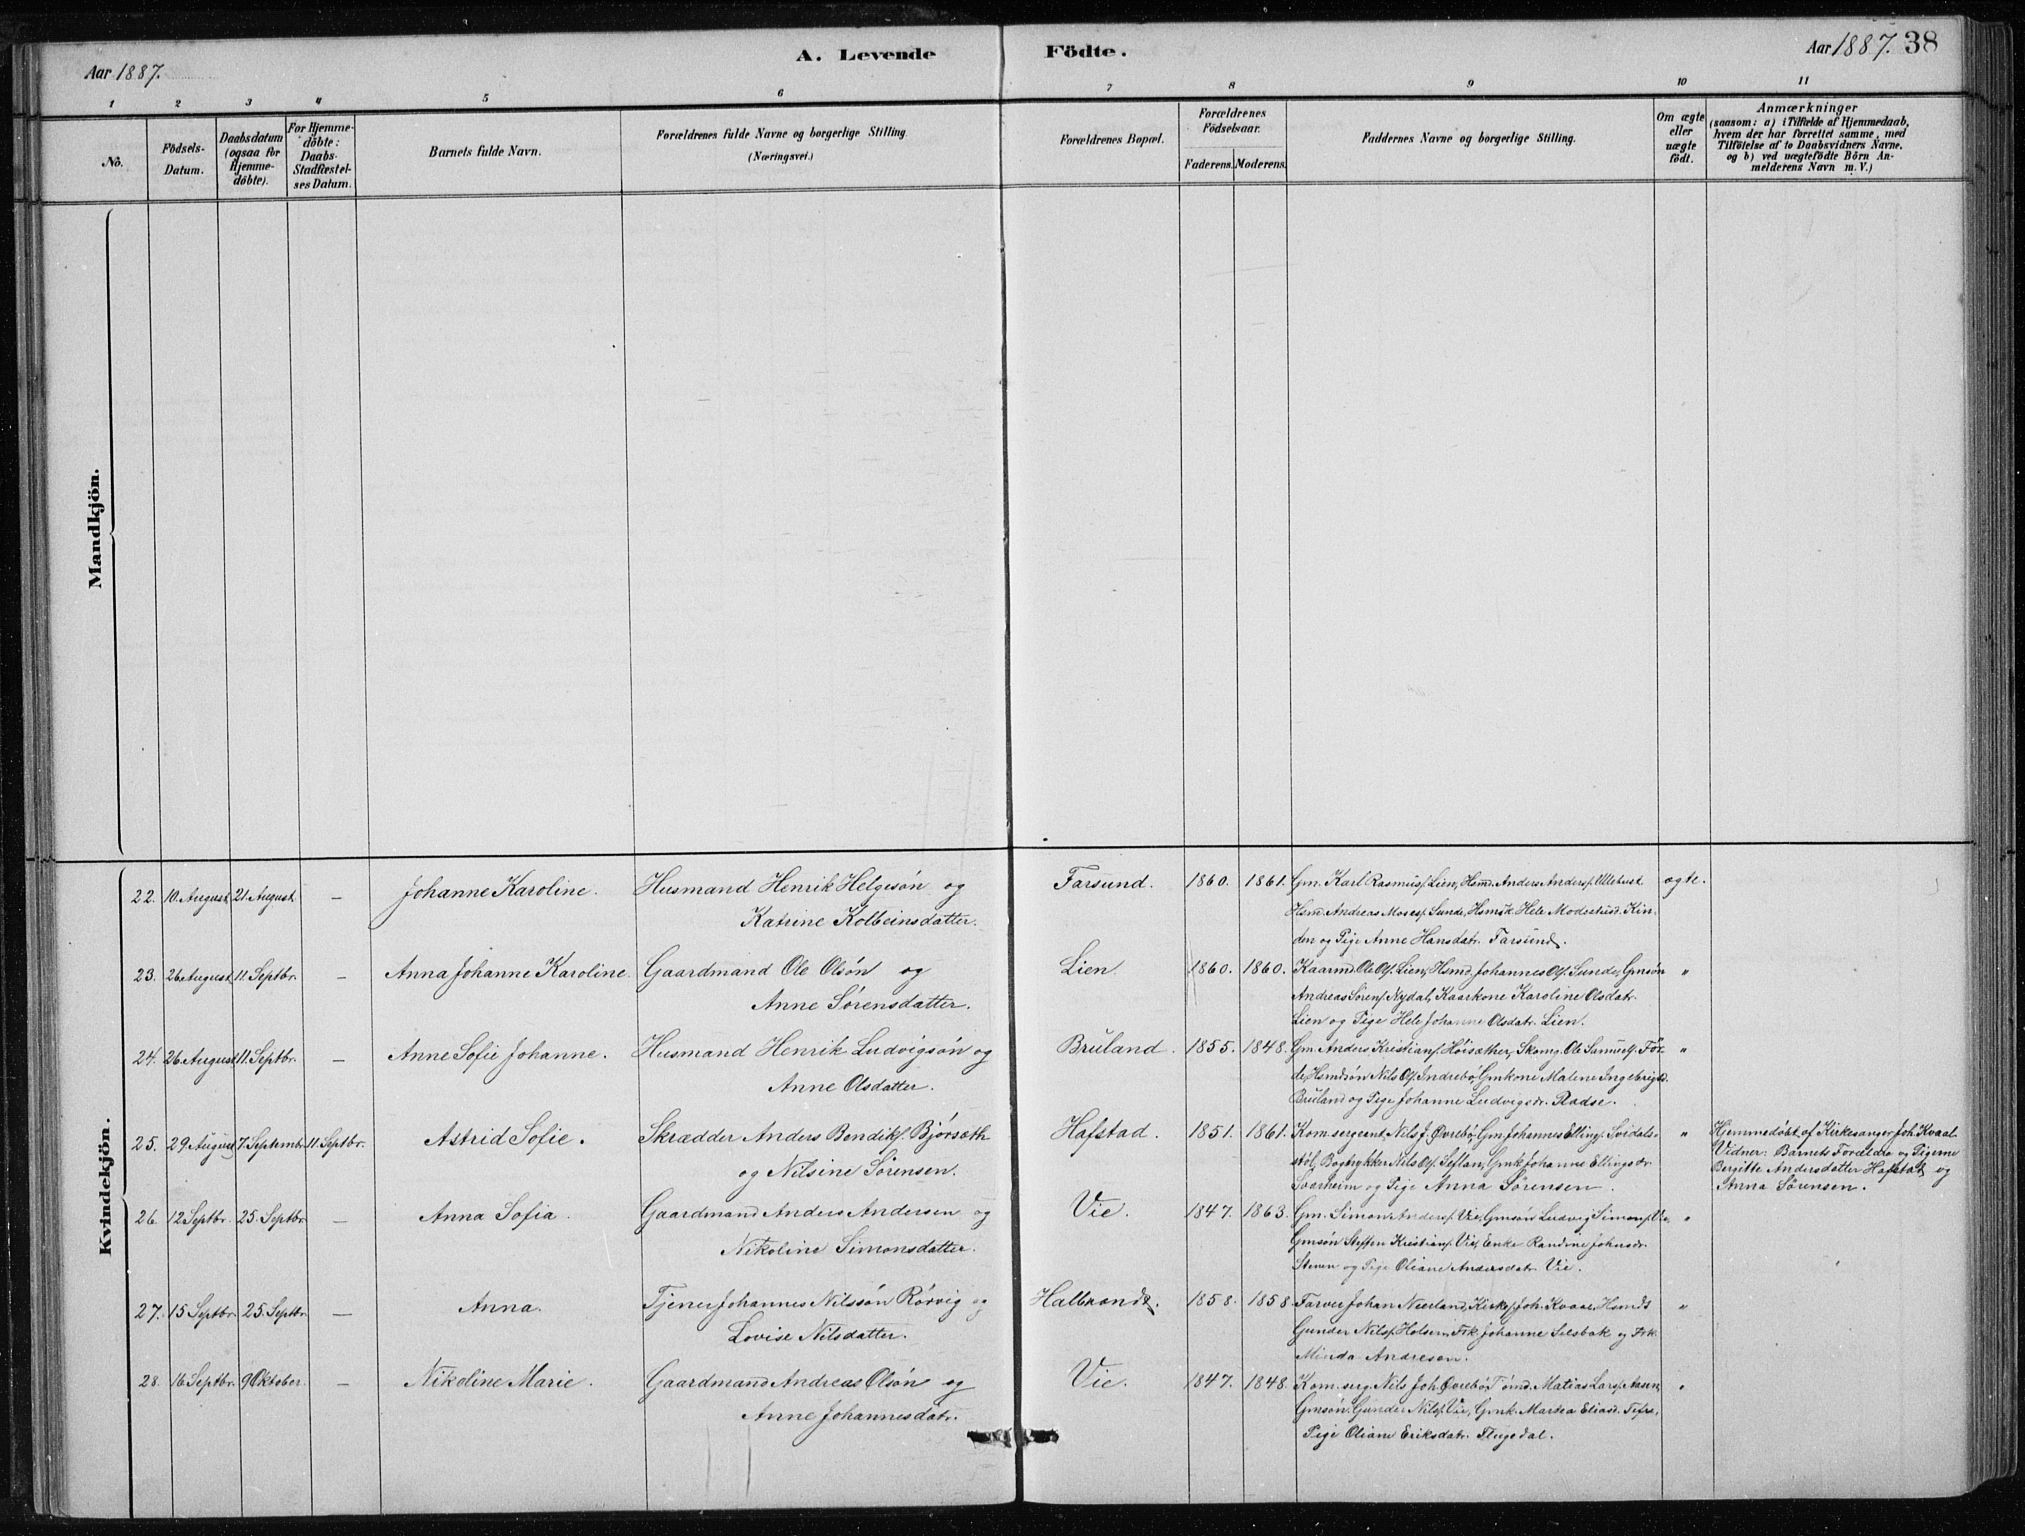 Aar 1887.
A. Levende Födte.
Aar 1887. 38
1 2 3 4 5 6 7 8 9 10 11
No.
Födsels-
Datum.
Daabsdatum
(ogsaa for
Hjemme-
döbte).
For Hjemme-
döbte:
Daabs-
Stadfæstel-
ses Datum.
Barnets fulde Navn.
Forældrenes fulde Navne og borgerlige Stilling.
(Næringsvei.)
Forældrenes Bopæl.
Forældrenes
Födselsaar.
Faderens. Moderens.
Faddernes Navne og borgerlige Stilling.
Om ægte
eller
uægte
födt.
Anmærkninger
(saasom: a) i Tilfælde af Hjemmedaab,
hvem der har forrettet samme, med
Tilföielse af to Daabsvidners Navne,
og b) ved uægtefödte Börn An-
melderens Navn m. V.)
Mandkjön.
Kvindekjön.
22. 10 August 21 August — Johanne Karoline. Husmand Henrik Helgesön og Farsund. 1860. 1861. Gm. Karl Rasmus. Lien, Hsmd. Anders Anders. Ullebust ægte.
Katrine Kolbeinsdatter. Hsm. Andreas Moses. Sunde, Hsmsk. Hele Modestusd. Kin-
den og Pige Anne Hansdatr. Farsund.
23. 26 August 11 Septbr. — Anna Johanne Karoline. Gaardmand Ole Olsön og Lien 1860. 1860. Kaarmd. Ole Ols. Lien, Hsmd. Johannes Ols. Sunde, Gmsön "
Anne Sörensdatter. Andreas Sörens. Nydal, Kaarkone Karoline Olsdatr.
Lien og Pige Hele Johanne Olsdatr. Lien.
24. 26 August 11 Septbr. — Anne Sofie Johanne. Husmand Henrik Ludvigsön og Bruland. 1855. 1848. Gm. Anders Kristians. Höisæther, Skomg. Ole Samuels. För- "
Anne Olsdatter. de, Hsmdsön Nils Ols. Indrebö, Gmkone Malene Ingebrigtsd.
Bruland og Pige Johanne Ludvigsdr. Radse.
25. 29 August 7 Septembr. 11 Septbr. Astrid Sofie. Skrædder Anders Bendiks. Björsæth Hafstad. 1851. 1861. Kom.sergeant Nils J. Øvrebö, Gm. Johannes Ellings. Svidals- " Hjemmedöbt af Kirkesanger Joh. Kvaal.
og Nilsine Sörensen. stöl, Bogtrykker Nils Ols. Seflan, Gmk. Johanne Ellingsdr. Vidner: Barnets Forældre og Pigerne
Svarheim og Pige Anna Sörensen. Bergitte Andersdatter Hafstad og
Anna Sörensen.
26. 12 Septbr. 25. Septbr. — Anna Sofia. Gaardmand Anders Andersen og Vie. 1847. 1863. Gm. Simon Anders. Vie, Gmsön Ludvig Simons. Vie, "
Nikoline Simonsdatter. Gmsön Steffen Kristians. Vie, Enke Randine Johnsdr.
Steien og Pige Oliane Andersdatr. Vie.
27. 15 Septbr. 25. Septbr. — Anna. Tjener Johannes Nilssön Rörvig og Halbrandt. 1858. 1858. Farver Johan Neerland, Kirkes. Joh. Kvaal, Hsmds. "
Lovise Nilsdatter. Gunder Nils. Holsen, Frk. Johanne Selsbak og Frk.
Minda Andresen.
28. 16 Septbr. 9 Oktober. — Nikoline Marie. Gaardmand Andreas Olsön og Vie. 1847. 1848. Kom.serg. Nils Joh. Øvrebö, Tömd. Matias Lars. Aasen, "
Anne Johannesdatr. Gmsön Gunder Nils. Vie, Gmk. Martea Eliasd. Tefre,
Pige Oliane Eriksdatr. Flugedal.